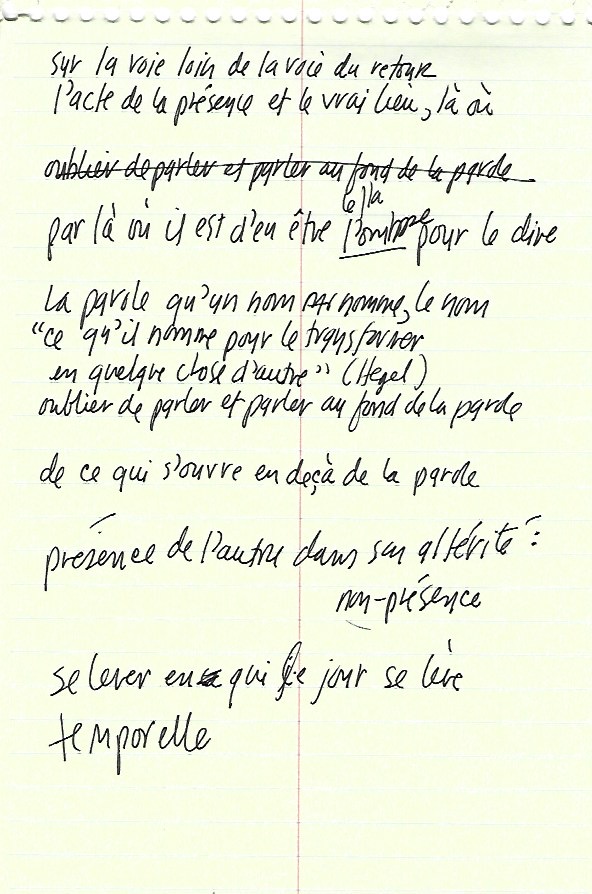 sur la voie loin de la voie du retour
l'acte de la présence et le vrai lieu, là où
oublier de parler et parler au fond de la parole
par là où il est d'en être l'ombre pour le dire
La parole qu'un nom nomme, le nom
"ce qu'il nomme pour le transformer
en quelque chose d'autre" (Hegel)
oublier de parler et parler au fond de la parole
de ce qui s'ouvre en deçà de la parole
présence de l'autre dans son altérité :
non-présence
se lever en qui le jour se lève
temporelle